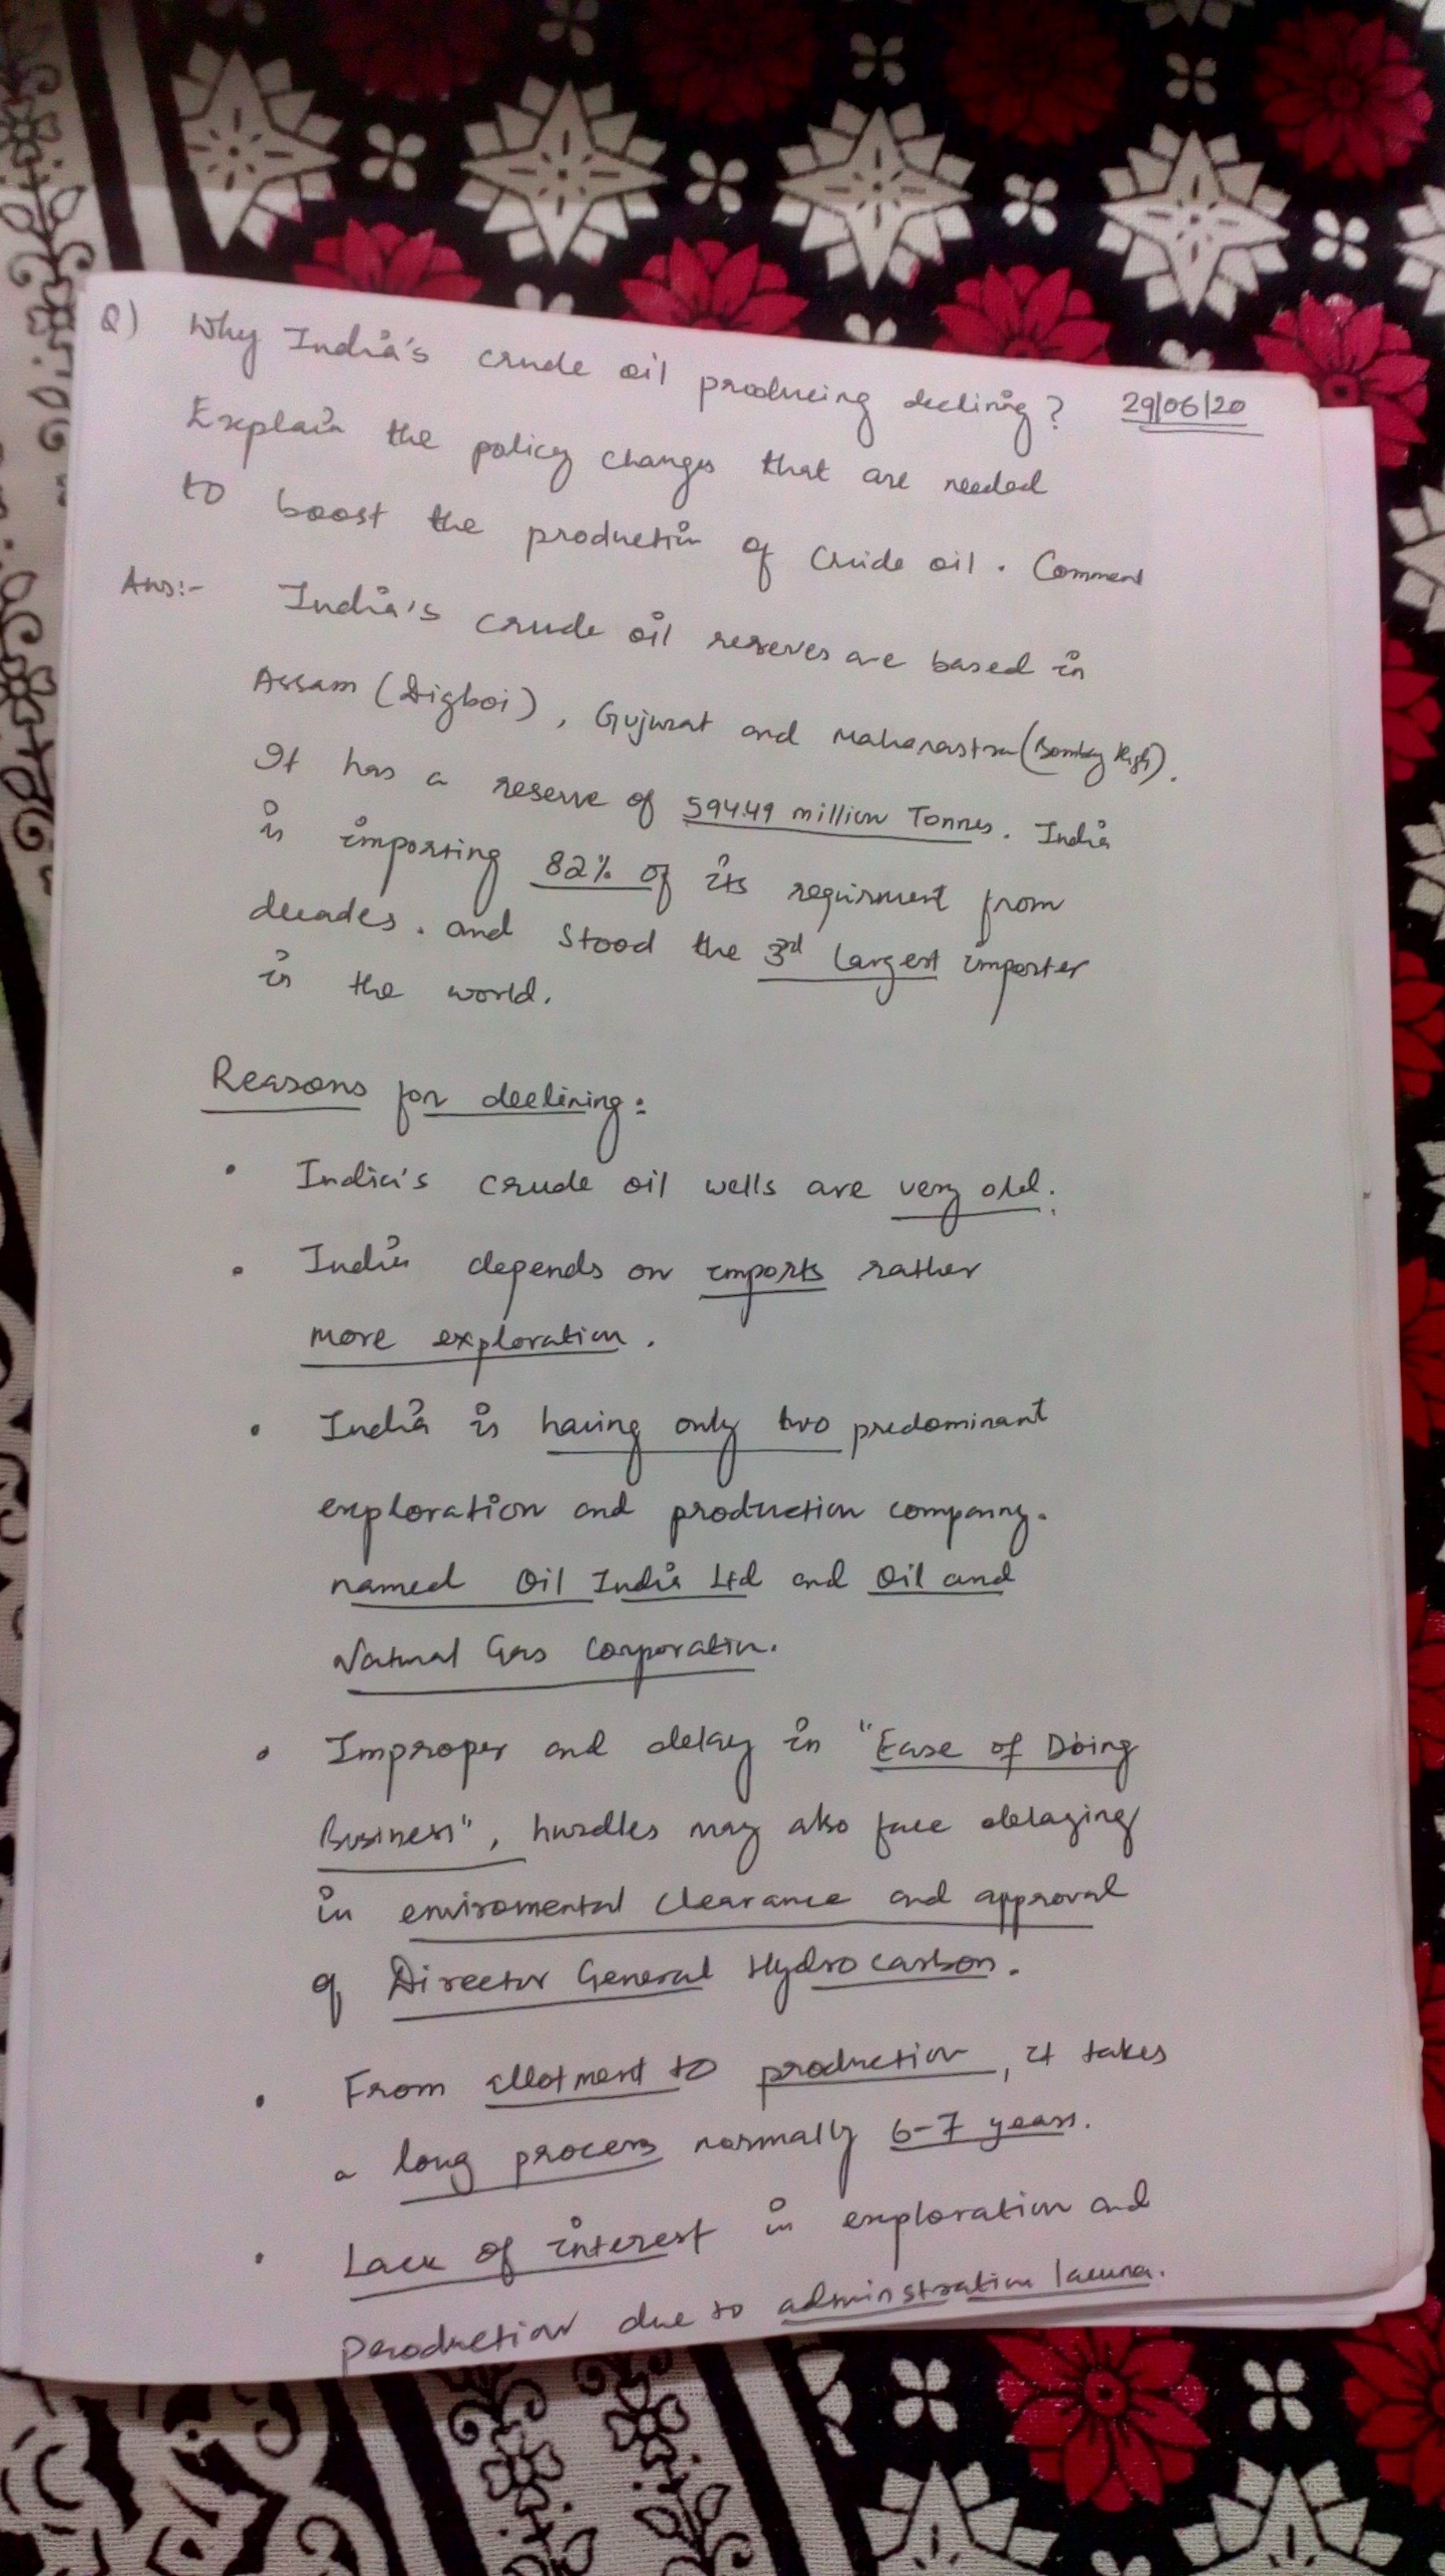 Q) Why India's crude oil producing declining? 29/06/20
Explain the policy changes that are needed
to boost the production of Crude oil. Comment
Ans:- India's crude oil reserves are based in
Assam (Digboi), Gujurat and Maharastra (Bombay High).
It has a reserve of 594.49 million Tonnes. India
is importing 82% of its requirment from
decades. and stood the 3rd largest importer
in the world.
Reasons for declining:
• India's crude oil wells are very old.
• India depends on imports rather
more exploration.
• India is having only two predominant
exploration and production company.
named Oil India Ltd and Oil and
Natural Gas Corporation.
• Improper and delay in "Ease of Doing
Business", hurdles may also face delaying
in enviromental clearance and approval
of Director General Hydrocarbon.
• From allotment to production, it takes
a long process normally 6-7 years.
• Lack of interest in exploration and
production due to adminstration lacuna.